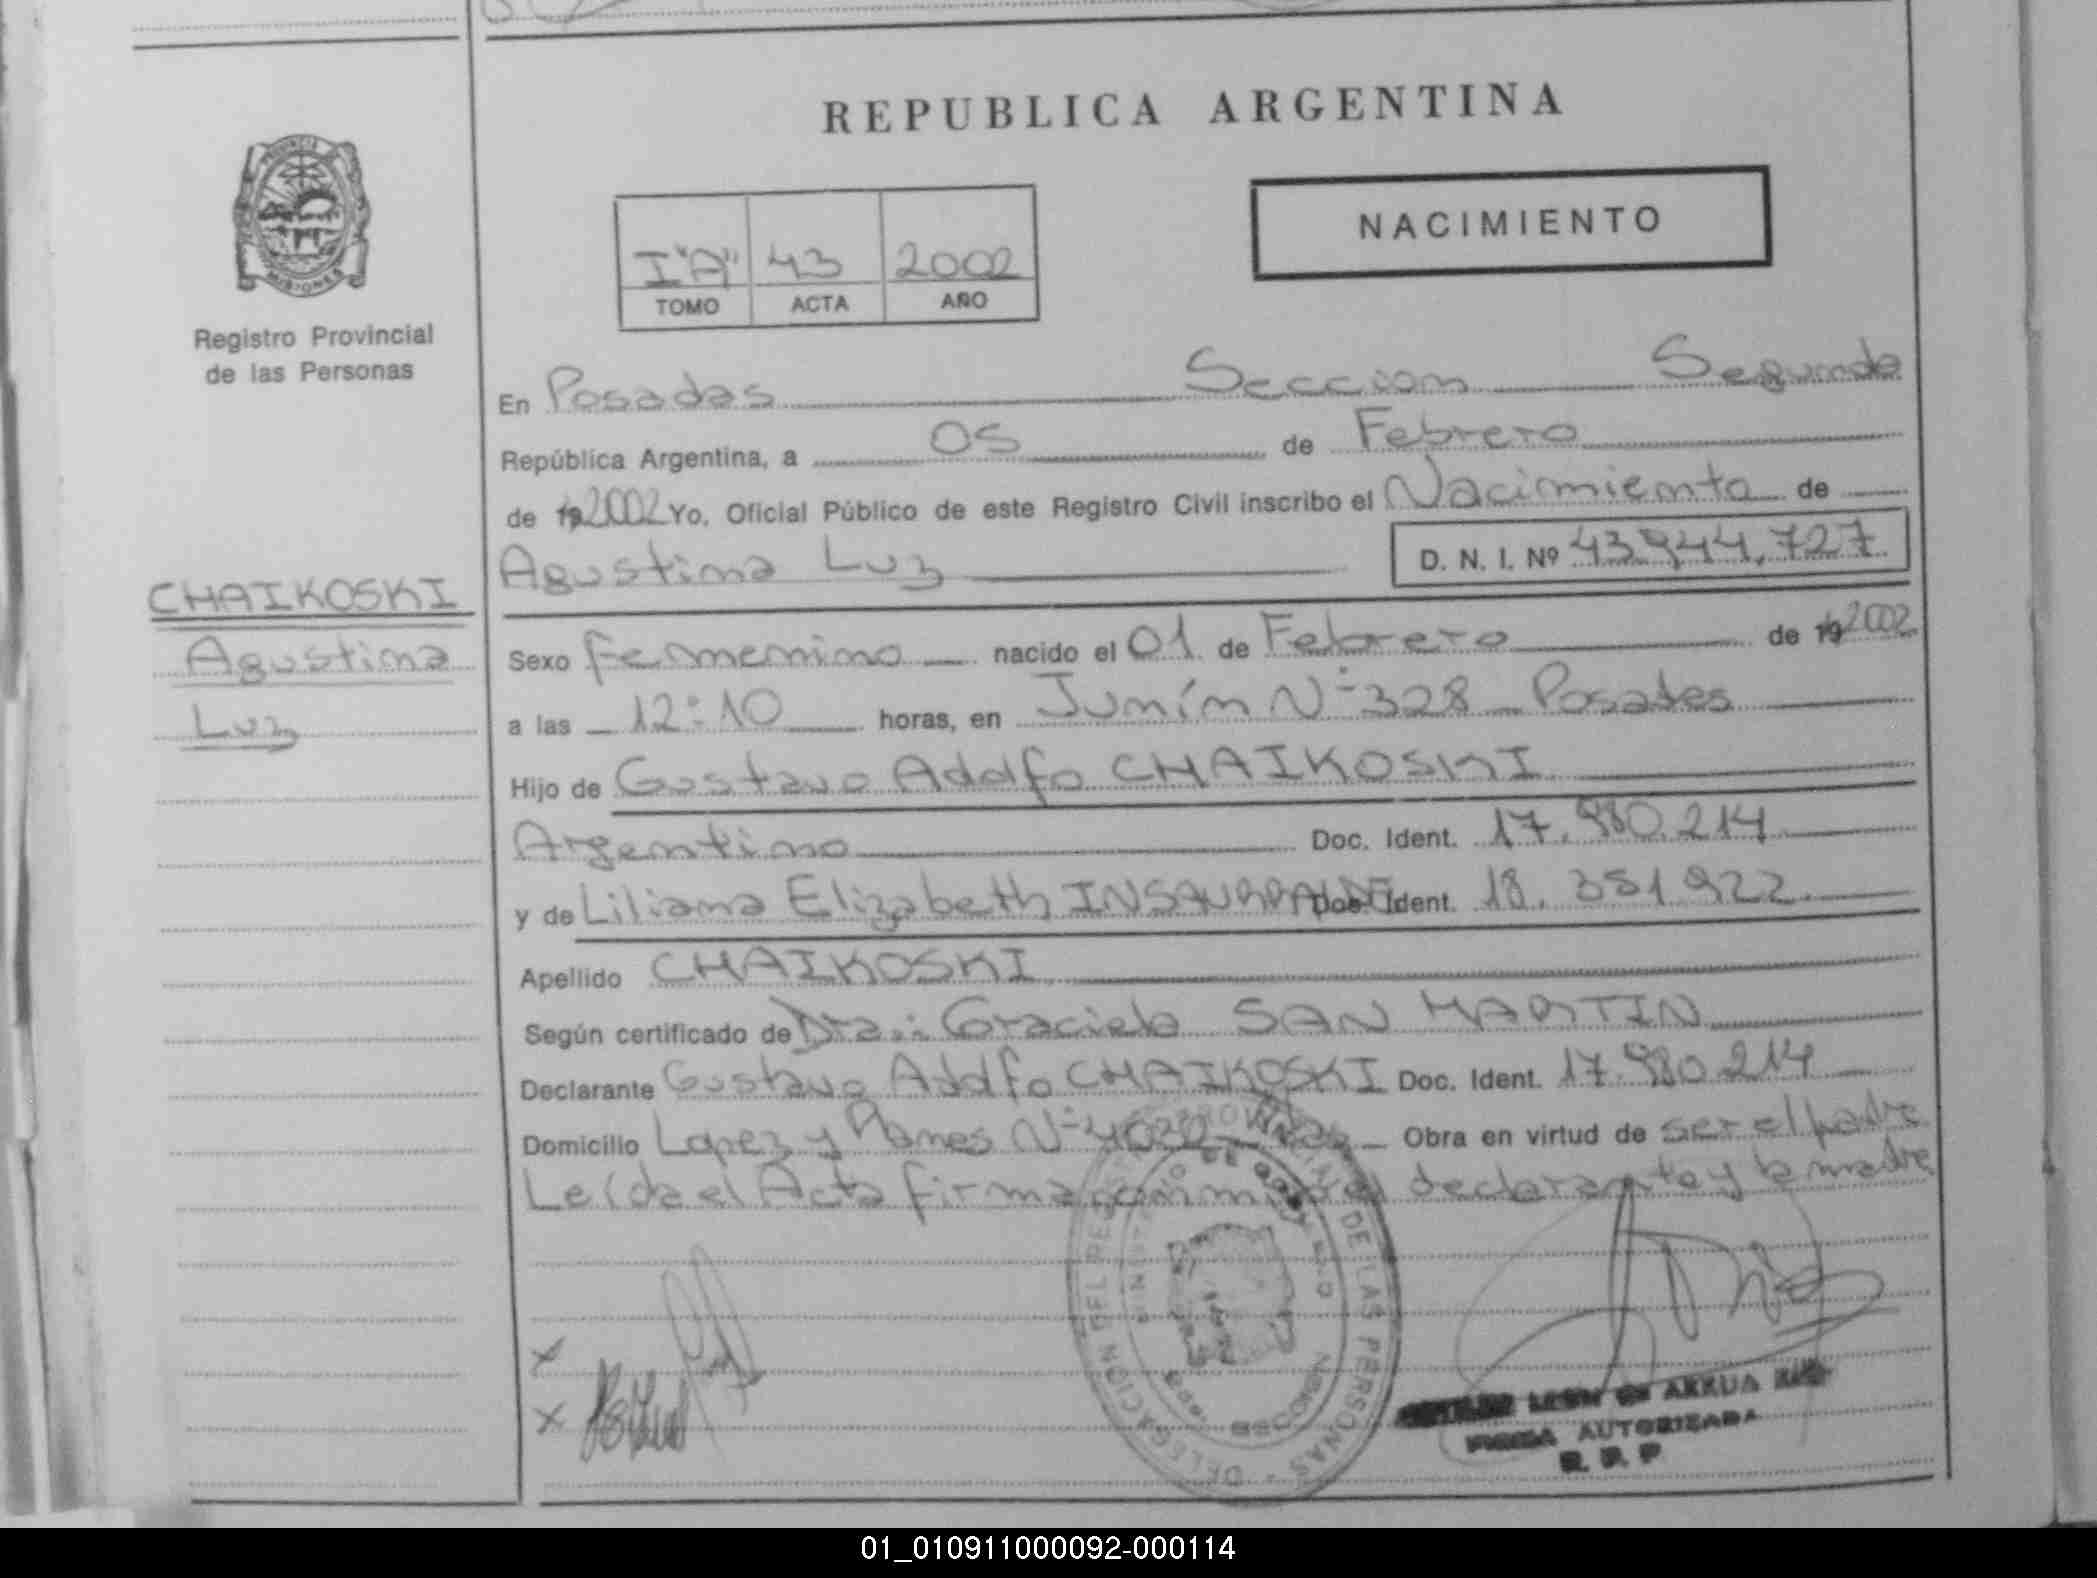 REPUBLICA ARGENTINA
NACIMIENTO
I "A" 43 2002
TOMO ACTA AÑO
PROVINCIA DE
MISIONES
Registro Provincial
de las Personas
CHAIKOSKI
Agustina
Luz
En Posadas Seccion Segunda
República Argentina, a 05 de Febrero
de 19 2002 Yo, Oficial Público de este Registro Civil inscribo el Nacimiento de
Agustina Luz D. N. I. Nº 43.944.727
Sexo femenino nacido el 01 de Febrero de 19 2002
a las 12:10 horas, en Junín Nº 328 Posadas
Hijo de Gustavo Adolfo CHAIKOSKI
Argentino Doc. Ident. 17.980.214
y de Liliana Elizabeth INSAURRALDE Doc. Ident. 18.351.922
Apellido CHAIKOSKI
Según certificado de Dra.: Graciela SAN MARTIN
Declarante Gustavo Adolfo CHAIKOSKI Doc. Ident. 17.980.214
Domicilio Lopez y Planes Nº Obra en virtud de ser el padre
Leída el Acta firma declarante y la madre
DELEGACIÓN DEL REGISTRO PROVINCIAL DE LAS PERSONAS
MINISTERIO DE GOBIERNO
ARRUA
FIRMA AUTORIZADA
R. P. P.
01_010911000092-000114